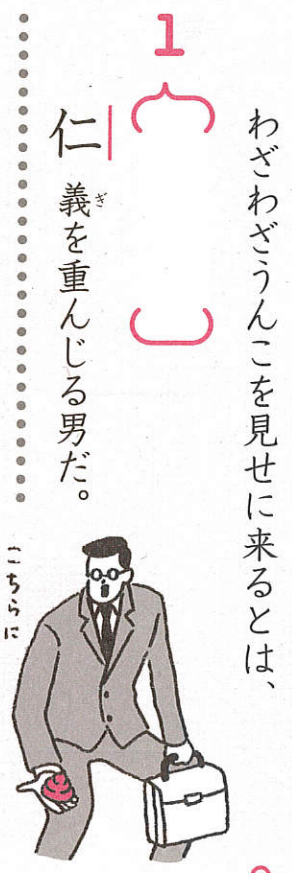 1
わざわざうんこを見せに来るとは、
仁義を重んじる男だ。
ぎ
こちらに